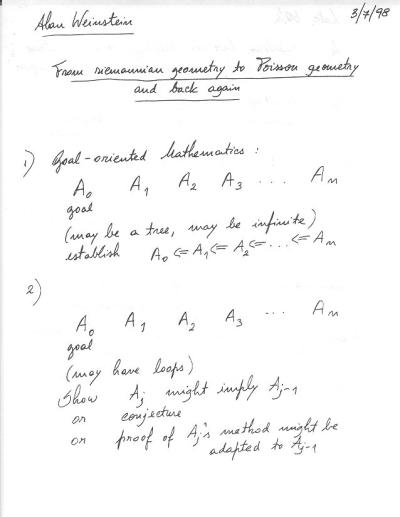 Alan Weinstein
3/7/98
From riemannian geometry to Poisson geometry
and back again
1) Goal-oriented Mathematics :
A0 A1 A2 A3 ... An
goal
(may be a tree, may be infinite)
establish A0 <= A1 <= A2 <= ... <= An
2)
A0 A1 A2 A3 ... An
goal
(may have loops)
Show Aj might imply Aj-1
or conjecture
or proof of Aj's method might be
adapted to Aj-1